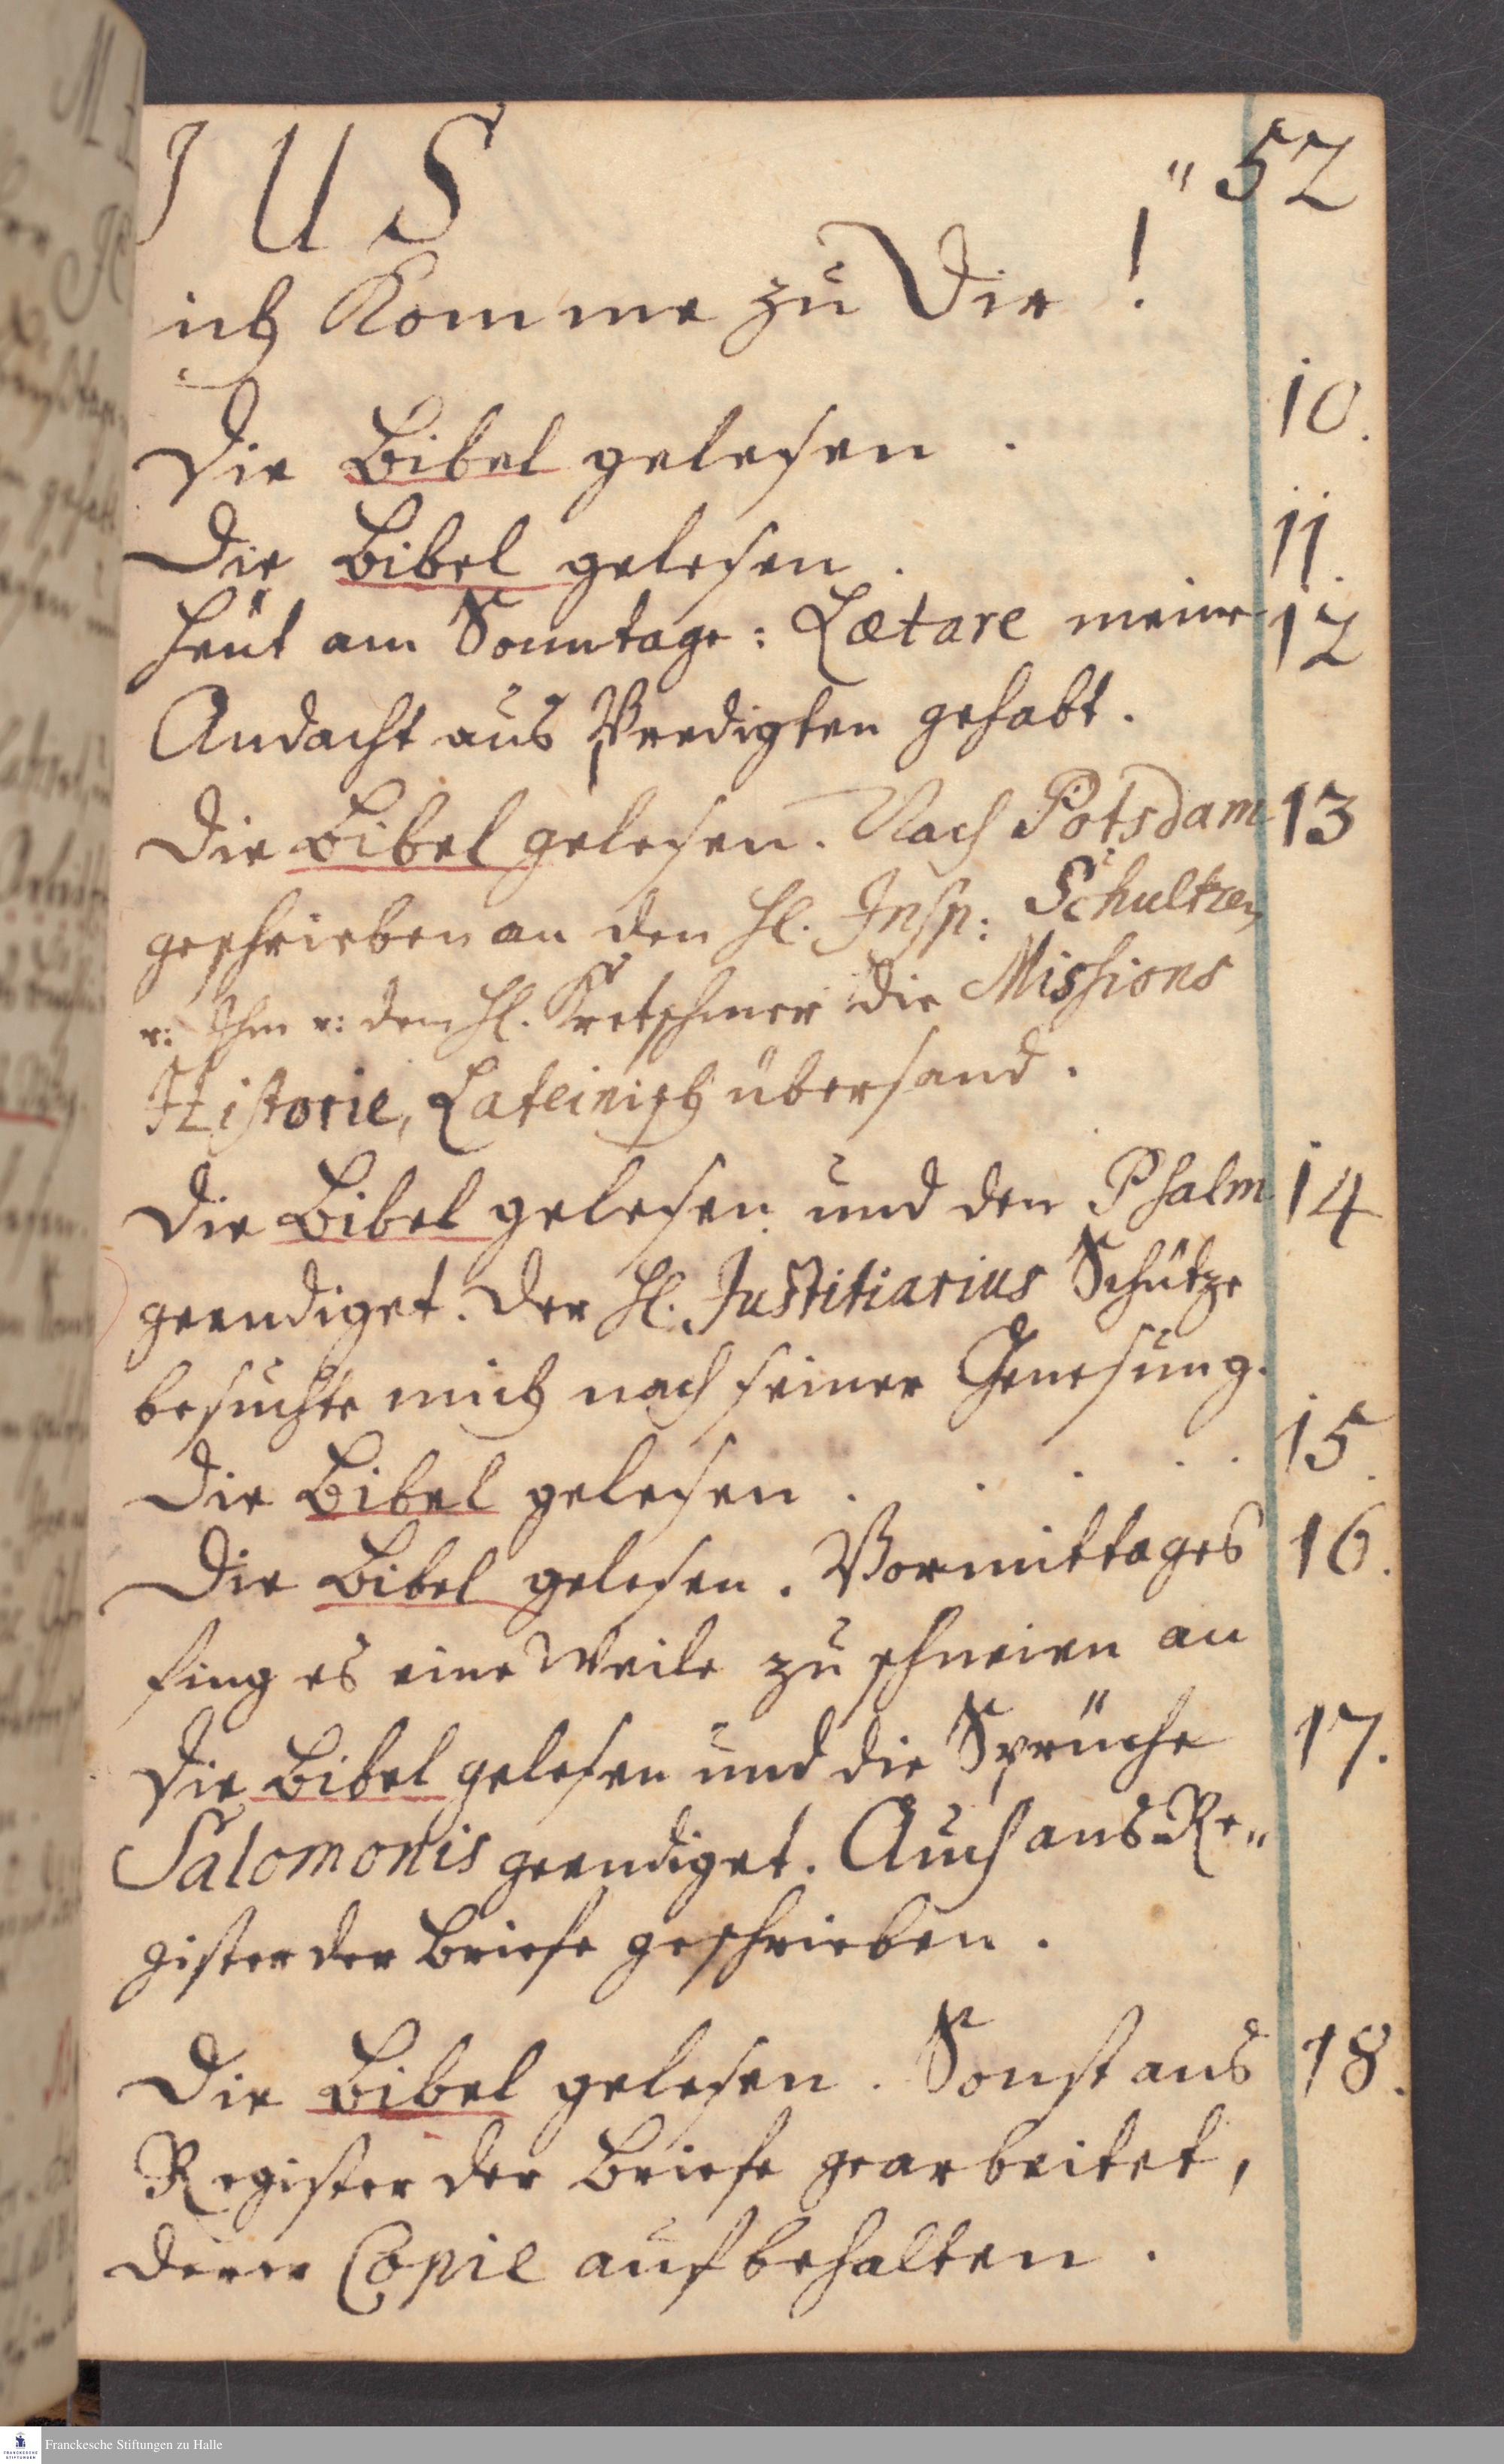 J U S " 52
ich Komme zu Dir !
10.
Die Bibel gelesen .
Die Bibel gelesen . 11.
Heut am Sonntage : Lætare meine 12
Andacht aus Predigten gehabt .
Die Bibel gelesen . Nach Potsdam 13
geschrieben an den H. Insp : Schultzen,
u : Ihm u : dem H. Kretschmer die Missions
Historie, Lateinisch übersand .
Die Bibel gelesen und den Psalm 14
geendiget . Der H. Justitiarius Schütze
besuchte mich nach seiner Genesung .
Die Bibel gelesen . . . . . 15.
Die Bibel gelesen . Vormittages 16.
fing es eine Weile zu schneien an
Die Bibel gelesen und die Sprüche 17.
Salomonis geendiget . Auch ans Re„
gister der Briefe geschrieben .
Die Bibel gelesen . Sonst ans 18.
Register der Briefe gearbeitet ,
derer Copie aufbehalten .
FRANCKESCHE STIFTUNGEN
Franckesche Stiftungen zu Halle